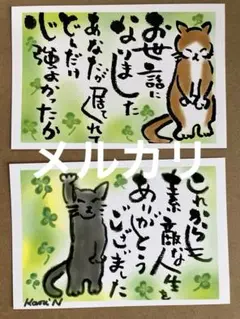 お世話に
なりました
あなたが居てくれて
どれだけ
心強よかったか
メルカリ
これからも
素敵な人生を
ありがとう
ございました
Kaori N